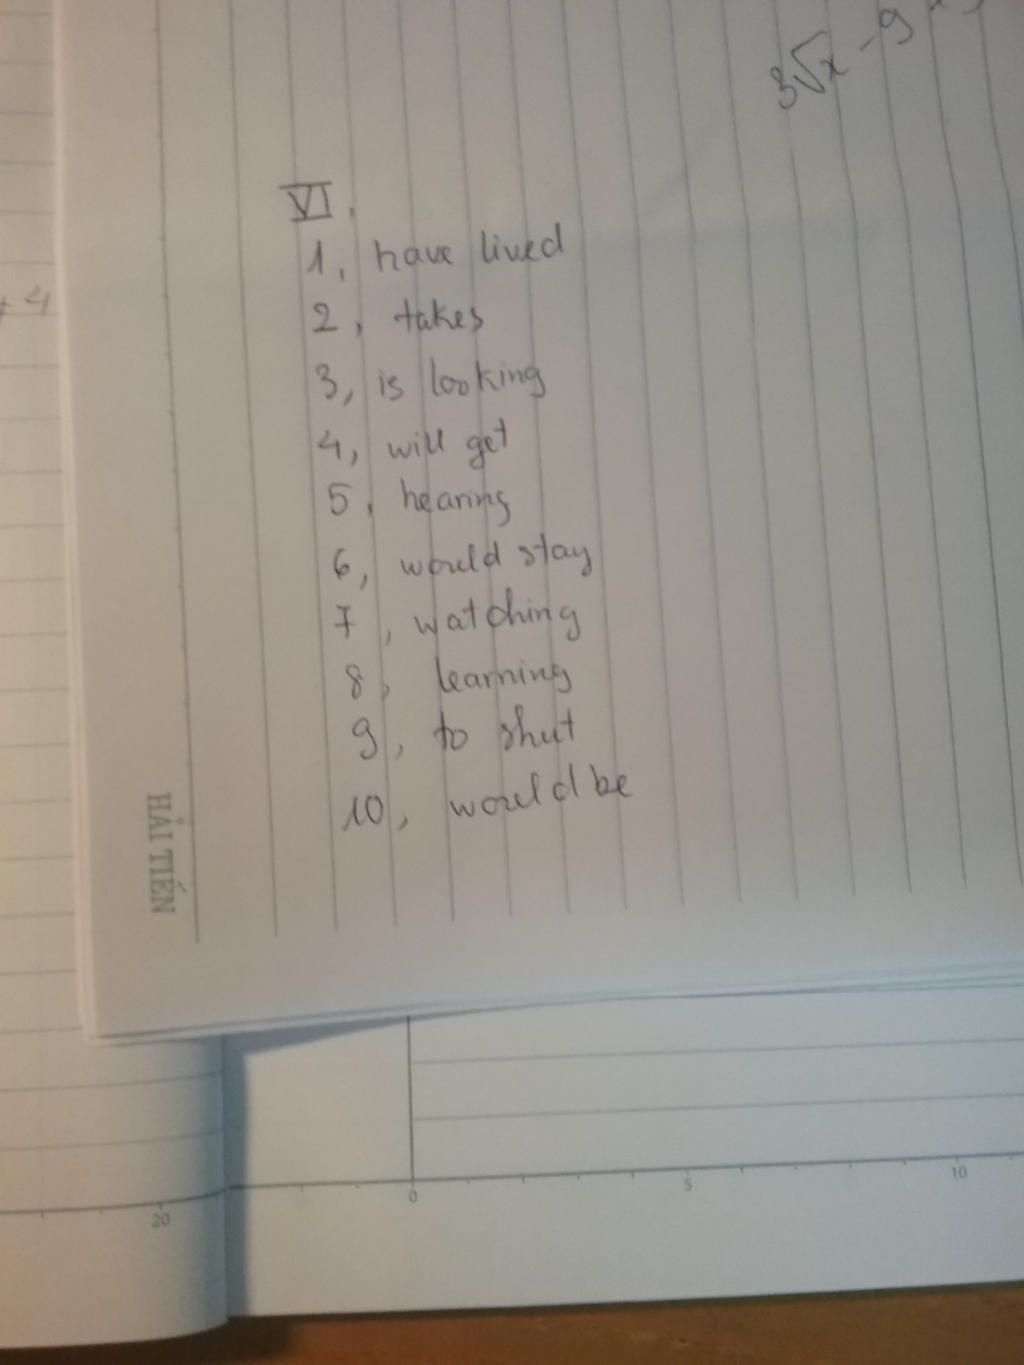 3√x - 9
VI.
1, have lived
2, takes
3, is looking
4, will get
5, hearing
6, would stay
7, watching
8, learning
9, to shut
10, would be
+ 4
HẢI TIẾN
20
0 5 10